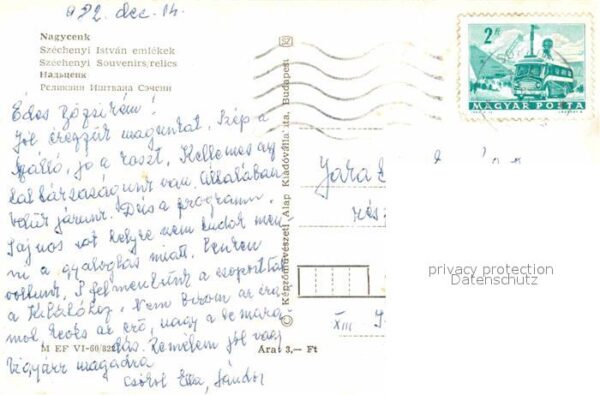 922. dec. 14.
Nagycenk
Széchenyi István emlékek
Széchenyi Souvenirs/relics
Надьценк
Реликвии Иштвана Сэчени
Édes Józsikám!
Jól érezzük magunkat. Szép a
szálló, jó a koszt. Kellemes asz
taltársaságunk van. Általában
velük járunk. Dús a program.
Sajnos sok helyre nem tudok men
ni a gyaloglás miatt.
voltunk, s felmentünk a csoporttal
a Kilátóhoz. Nem bírom az ira
mot, kevés az erő, nagy a lemara
dás. Remélem jól vagy
Vigyázz magadra
Csókol Ella, Sándor
M EF VI-60/822
Árat 3,— Ft
© Képzőművészeti Alap Kiadóvállalata, Budapest
SZ
2 Ft
MAGYAR POSTA
Jara
rész
XIII
privacy protection
Datenschutz